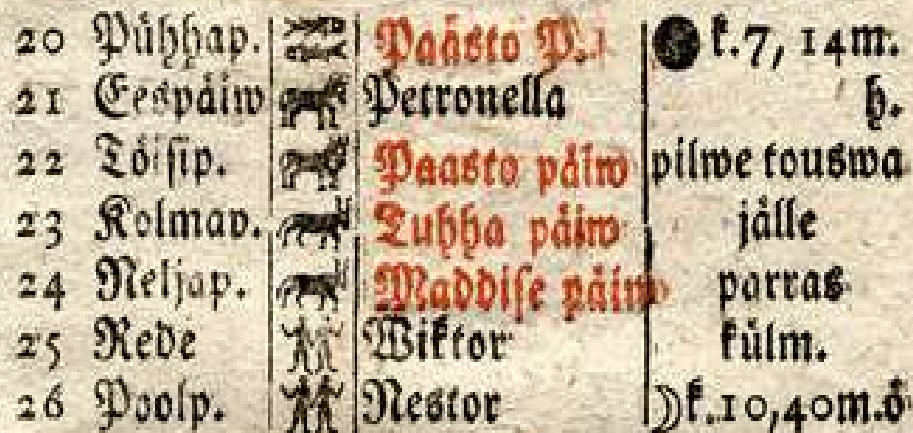 20 Pühhap. Paästo P. k.7, 14m.
21 Eespäiw Petronella h.
22 Töisip. Paasto päiw pilwe touswa
23 Kolmap. Tuhha päiw jälle
24 Neljap. Maddise päiw parras
25 Rede Wiktor külm.
26 Poolp. Nestor k.10,40m.ö